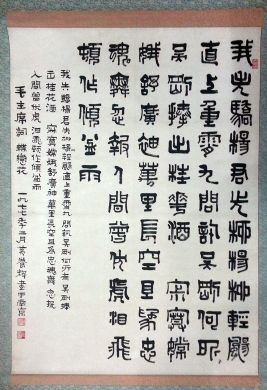 我失驕楊君失柳楊柳輕颺
直上重霄九問訊吳剛何所
有吳剛捧出桂花酒寂寞嫦
娥舒廣袖萬里長空且為忠
魂舞忽報人間曾伏虎淚飛
頓作傾盆雨
我失驕楊君失柳楊柳輕颺直上重霄九問訊吳剛何所有吳剛捧
出桂花酒寂寞嫦娥舒廣袖萬里長空且為忠魂舞忽報
人間曾伏虎淚飛頓作傾盆雨
毛主席詞蝶戀花 一九七七年二月書于南京